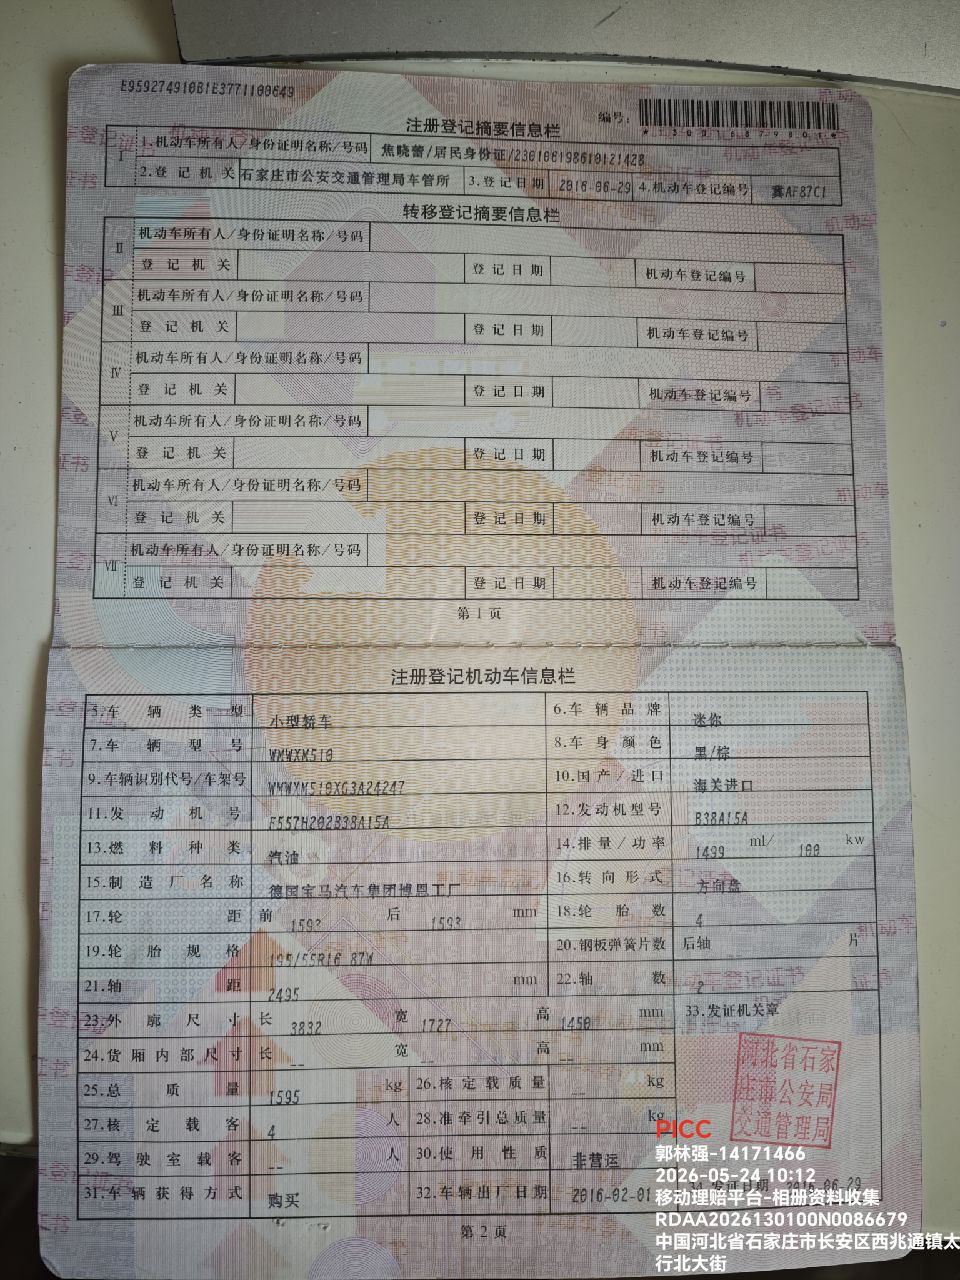 E959274910B1E3771100649
编号:
*130016879801*
注册登记摘要信息栏
I
1.机动车所有人/身份证明名称/号码 焦晓蕾/居民身份证/230106198610121428
2.登记机关 石家庄市公安交通管理局车管所 3.登记日期 2016-06-29 4.机动车登记编号 冀AF87C1
转移登记摘要信息栏
II 机动车所有人/身份证明名称/号码
登记机关 登记日期 机动车登记编号
III 机动车所有人/身份证明名称/号码
登记机关 登记日期 机动车登记编号
IV 机动车所有人/身份证明名称/号码
登记机关 登记日期 机动车登记编号
V 机动车所有人/身份证明名称/号码
登记机关 登记日期 机动车登记编号
VI 机动车所有人/身份证明名称/号码
登记机关 登记日期 机动车登记编号
VII 机动车所有人/身份证明名称/号码
登记机关 登记日期 机动车登记编号
第1页
注册登记机动车信息栏
5.车辆类型 小型轿车 6.车辆品牌 迷你
7.车辆型号 WMWXM510 8.车身颜色 黑/棕
9.车辆识别代号/车架号 WMWXM510XG3A24247 10.国产/进口 海关进口
11.发动机号 F557H202B38A15A 12.发动机型号 B38A15A
13.燃料种类 汽油 14.排量/功率 1499 ml/ 100 kw
15.制造厂名称 德国宝马汽车集团博恩工厂 16.转向形式 方向盘
17.轮距 前 1593 后 1593 mm 18.轮胎数 4
19.轮胎规格 195/55R16 87W 20.钢板弹簧片数 后轴 片
21.轴距 2495 mm 22.轴数 2
23.外廓尺寸 长 3832 宽 1727 高 1450 mm 33.发证机关章
24.货厢内部尺寸 长 -- 宽 -- 高 -- mm
25.总质量 1595 kg 26.核定载质量 -- kg
27.核定载客 4 人 28.准牵引总质量 -- kg
29.驾驶室载客 -- 人 30.使用性质 非营运
31.车辆获得方式 购买 32.车辆出厂日期 2016-02-01 34.发证日期 2016-06-29
河北省石家
庄市公安局
交通管理局
第2页
PICC
郭林强-14171466
2026-05-24 10:12
移动理赔平台-相册资料收集
RDAA2026130100N0086679
中国河北省石家庄市长安区西兆通镇太
行北大街